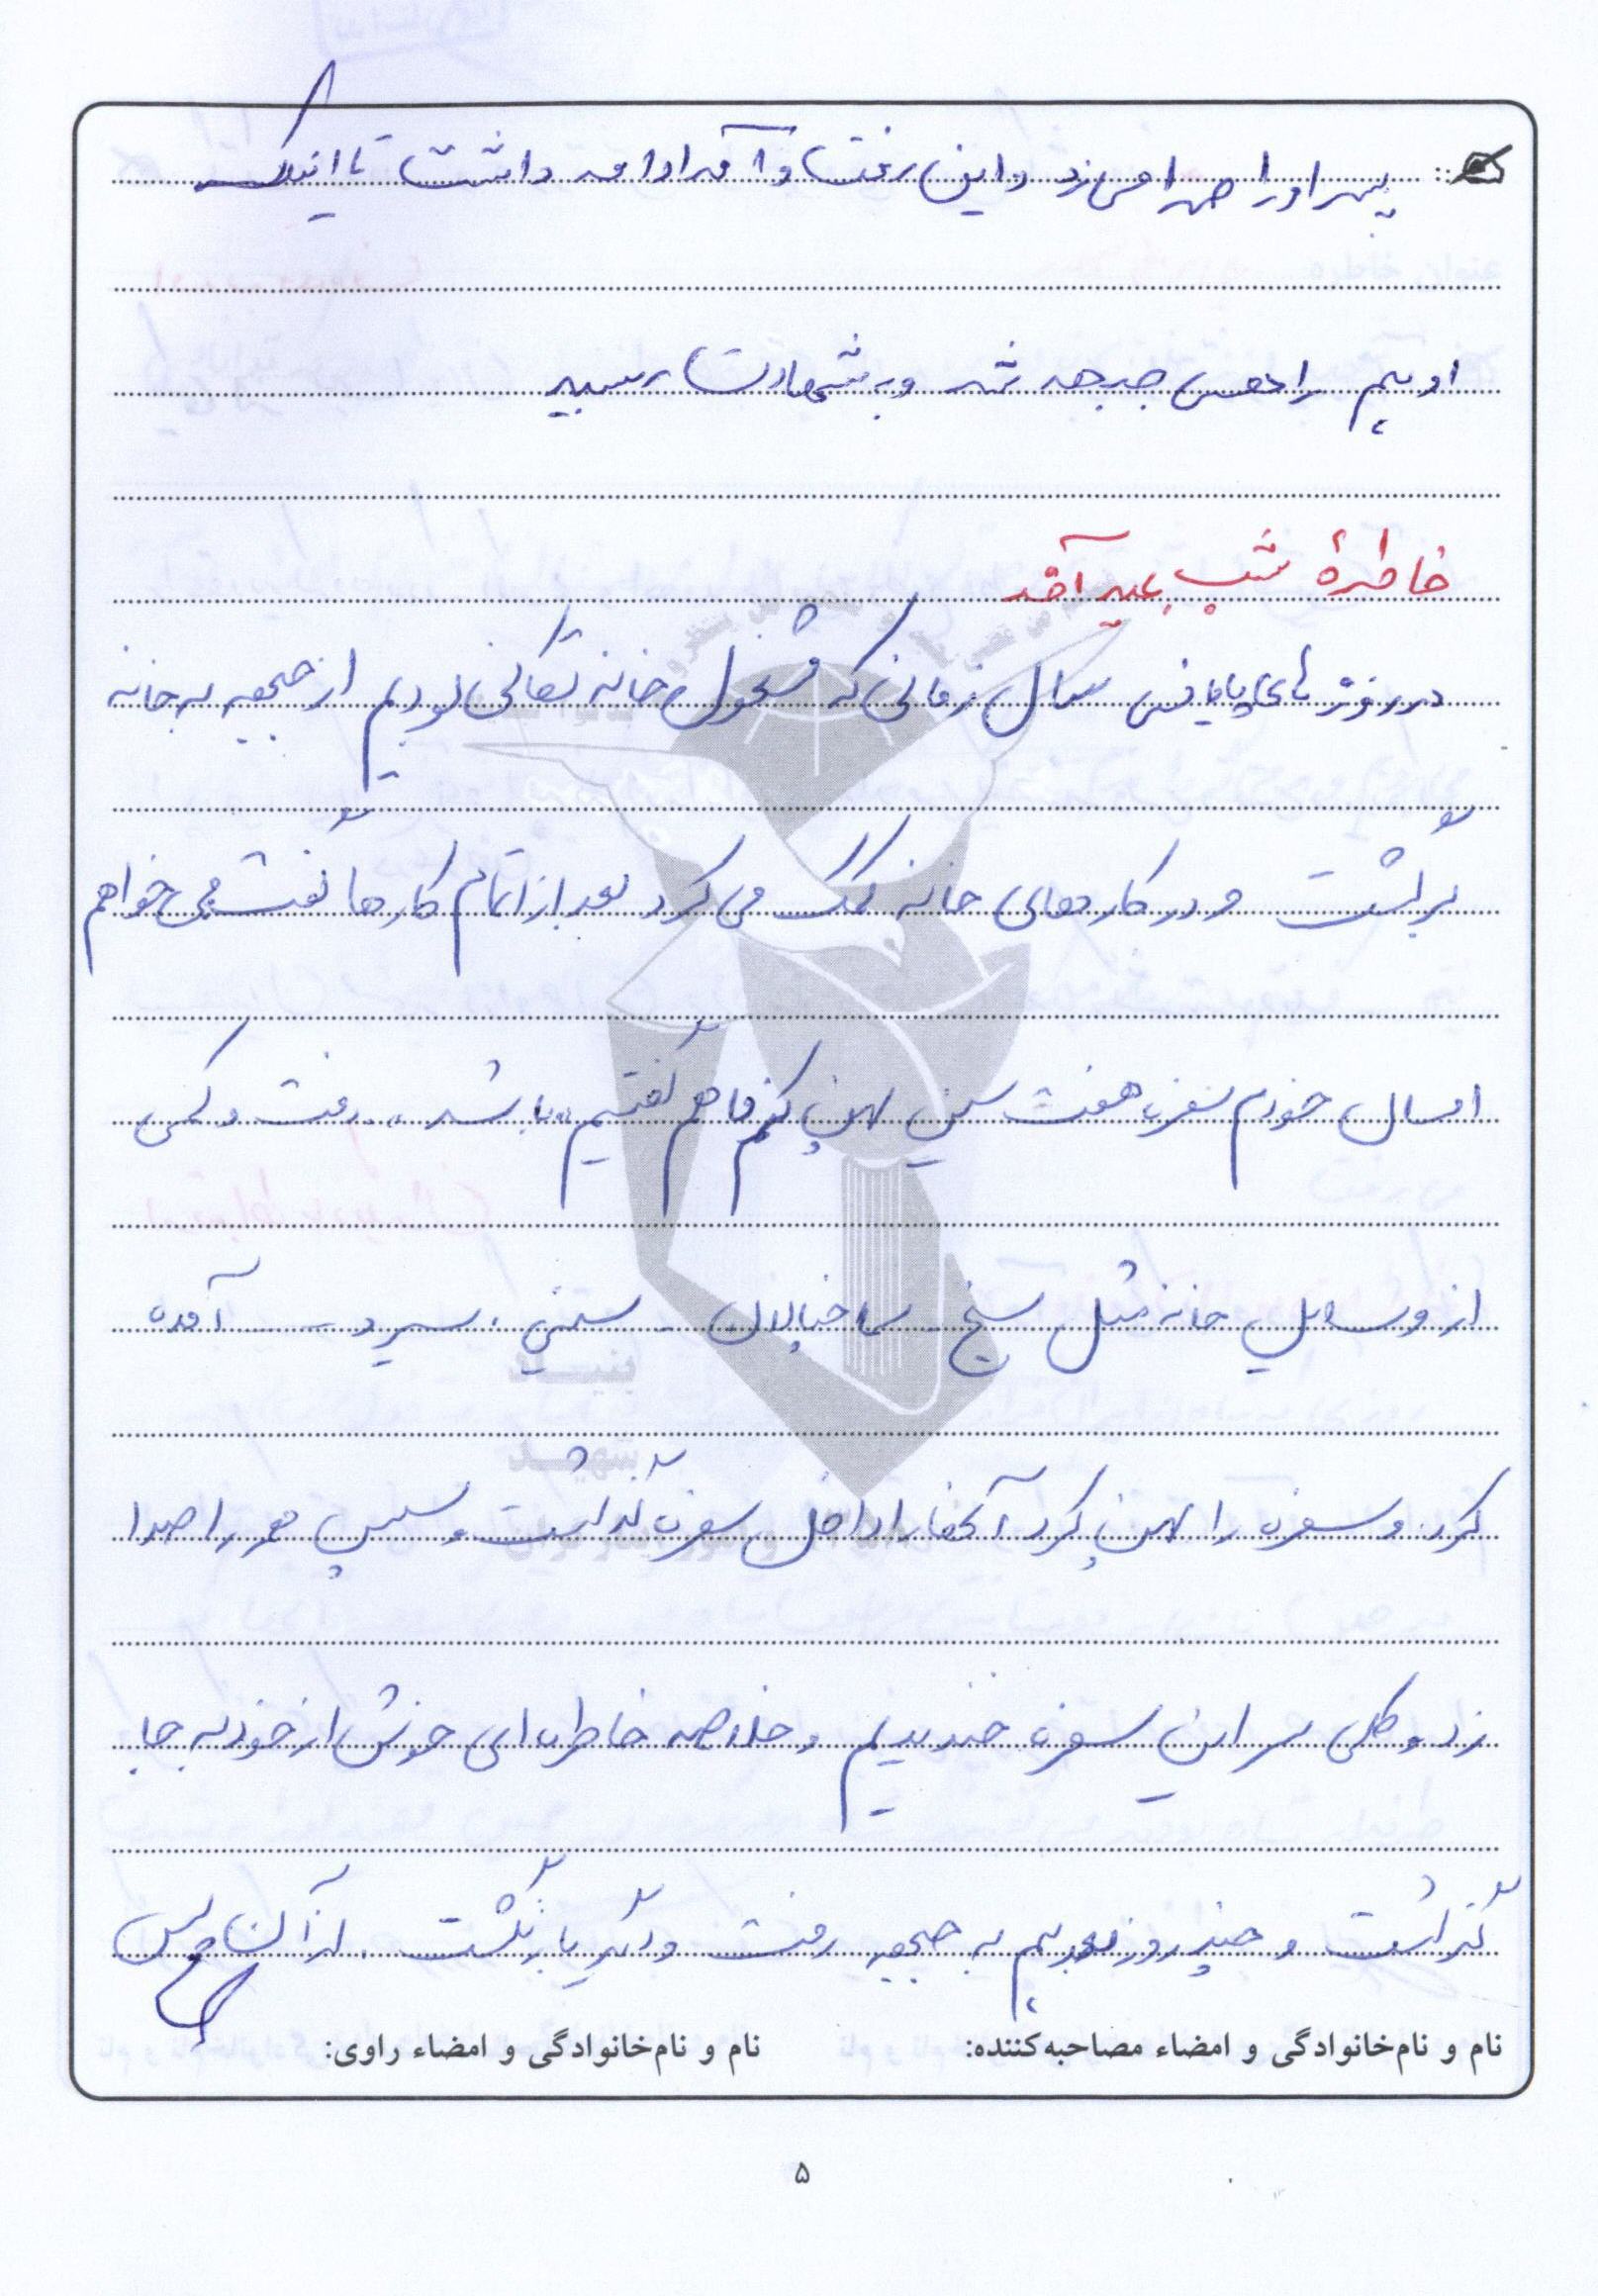 پسر او را صدا می زد و این رفت و آمد ادامه داشت تا اینکه
او هم راهی جبهه شد و به شهادت رسید
خاطرهٔ شب عید آمد
در روزهای پایانی سال زمانی که مشغول خانه تکانی بودیم از جبهه به خانه
برگشت و در کارهای خانه کمک می کرد بعد از اتمام کارها گفت می خواهم
امسال خودم سفره هفت سین پهن کنم ما هم گفتیم «باشد» رفت و کمی
از وسایل خانه مثل سیخ - سماخپالان - سینی . سیر و - آمده
کرد و سفره را پهن کرد آنها را داخل سفره گذاشت و سپس همه را صدا
زد و کلی سر این سفره خندیدیم و خلاصه خاطره ای خوش از خود به جا
گذاشت و چند روز بعد هم به جبهه رفت و دیگر باز نگشت . از آن پس
بنیاد
شهید
نام و نام‌خانوادگی و امضاء مصاحبه‌کننده: نام و نام‌خانوادگی و امضاء راوی:
۵